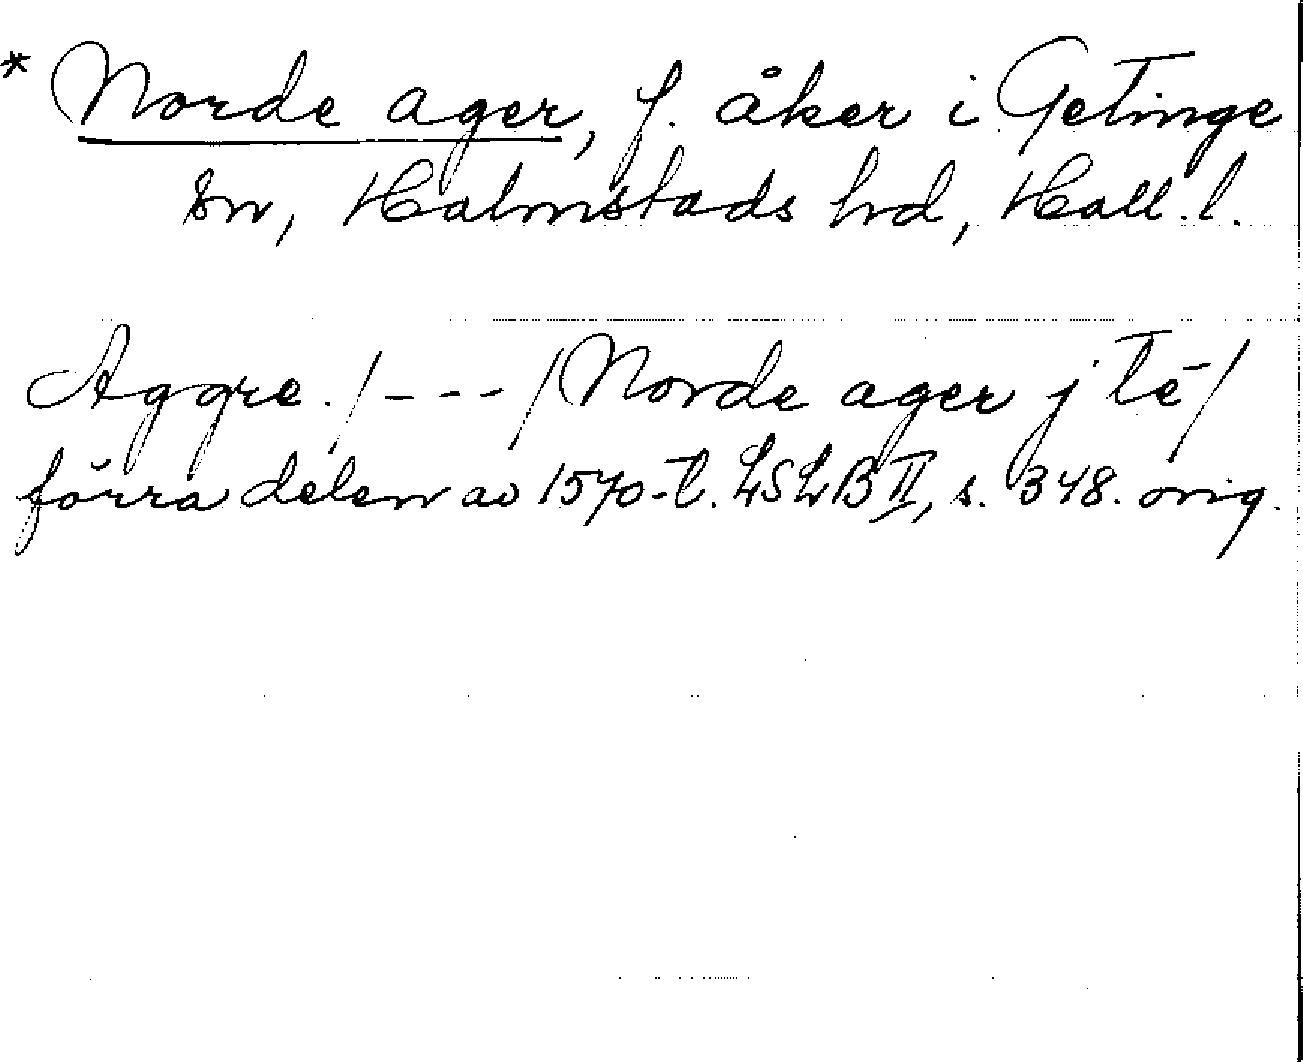 * Norde ager, f. åker i Getinge
sn, Halmstads hd, Hall. l.
Aggre. /---/ Norde ager j té/
förra delen av 1570-t. LSLB II, s. 348. orig.